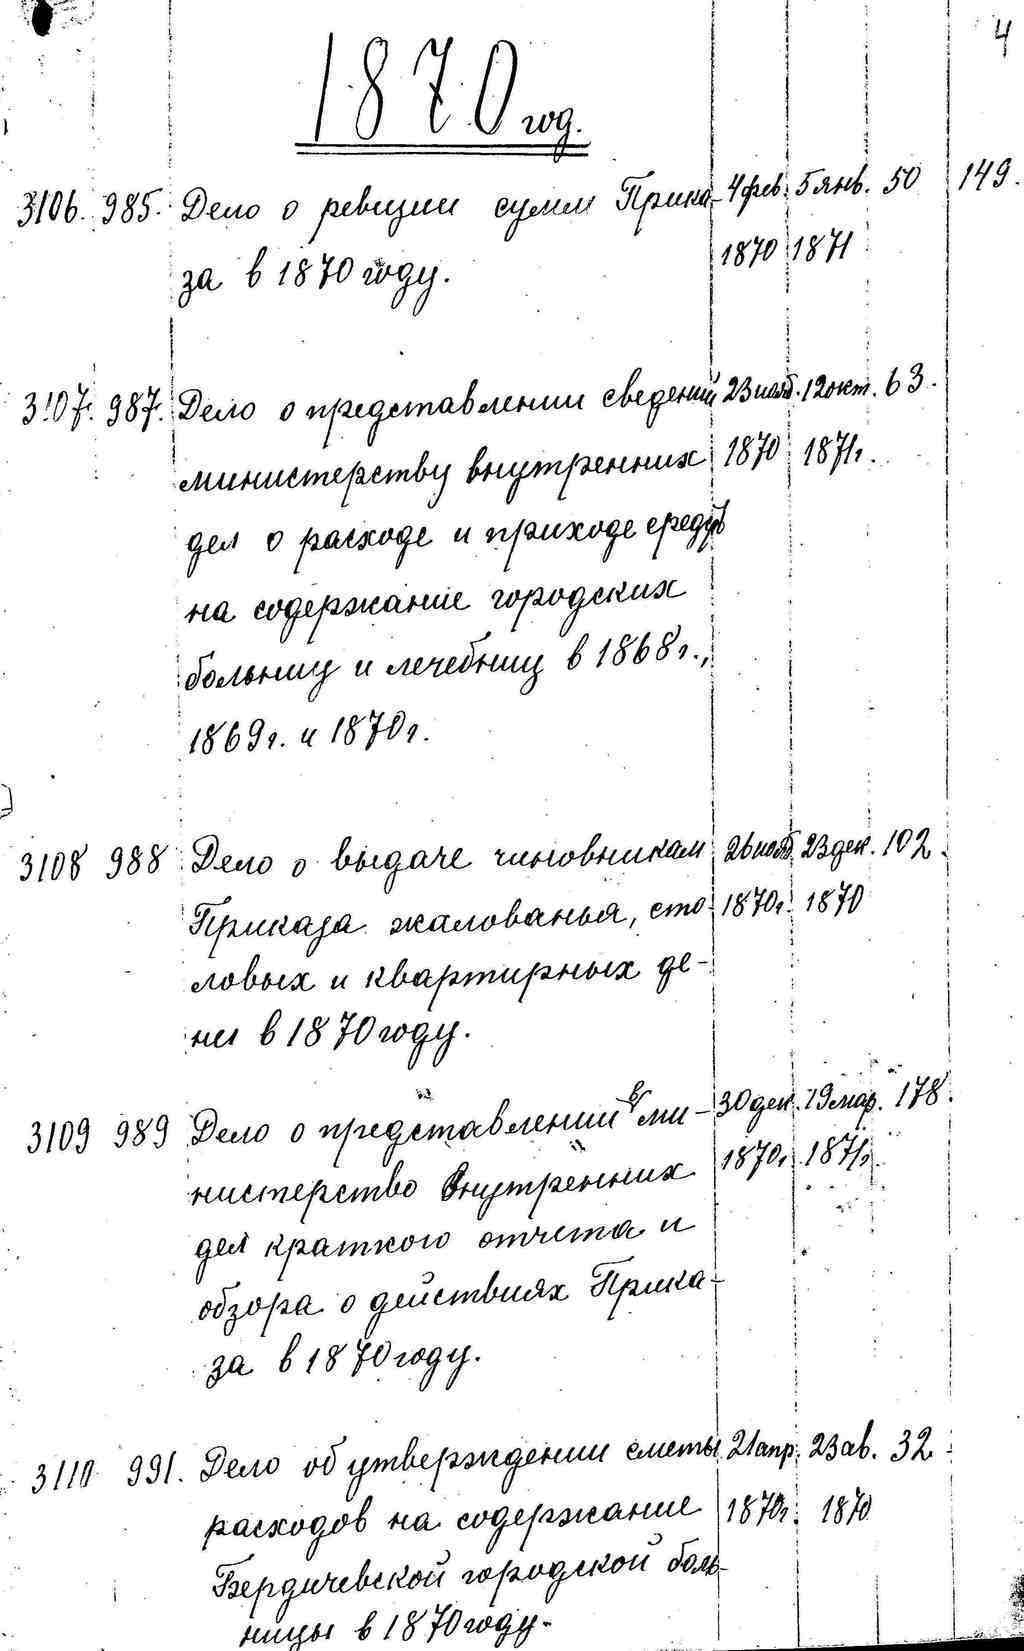 4
1870 год.
3106. 985. Дело о ревизии сумм Прика- 4 фев. 5 янв. 50 149.
за в 1870 году. 1870 1871
3107. 987. Дело о представлении сведений 23 нояб. 12 окт. 63.
министерству внутренних 1870 1871г.
дел о расходе и приходе средств
на содержание городских
больниц и лечебниц в 1868г.,
1869г. и 1870г.
3108 988 Дело о выдаче чиновникам 26 нояб. 23 дек. 102.
Приказа жалованья, сто- 1870г. 1870
ловых и квартирных де-
нег в 1870 году.
3109 989 Дело о представлении в ми- 30 дек. 19 мар. 178.
нистерство внутренних 1870г. 1871г.
дел краткого отчета и
обзора о действиях Прика-
за в 1870 году.
3110 991. Дело об утверждении сметы 21 апр. 23 ав. 32
расходов на содержание 1870г. 1870
Бердичевской городской боль-
ницы в 1870 году.